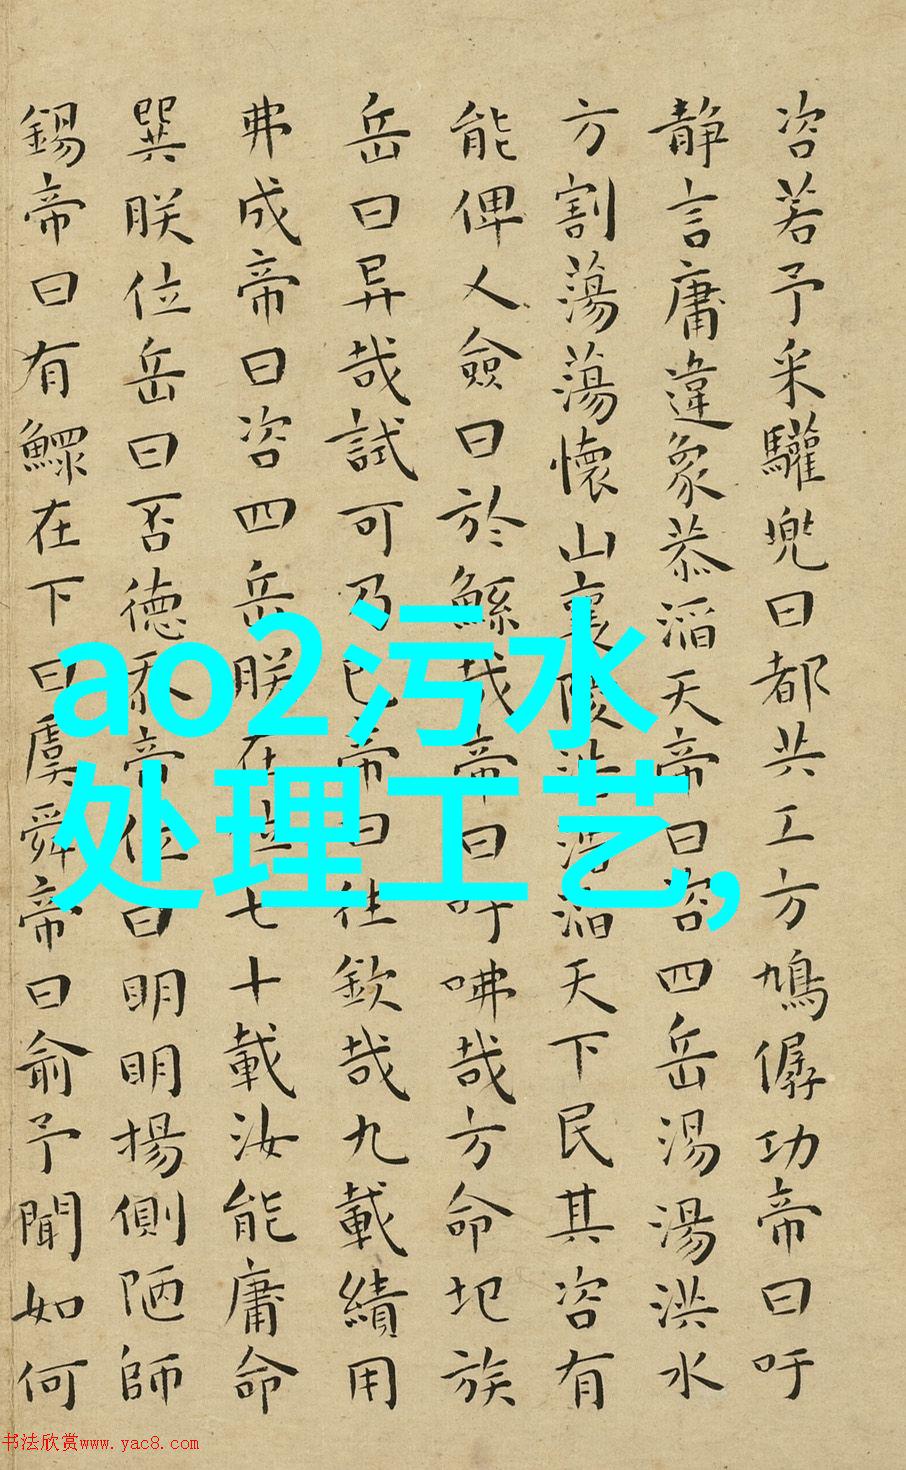 咨若予采驩兜曰都共工方鳩僝功帝曰吁
静言庸違象恭滔天帝曰咨四岳湯湯洪水
方割蕩蕩懷山襄陵浩浩滔天下民其咨有
能俾人僉曰於鯀哉帝曰吁咈哉方命圮族
岳曰异哉試可乃已帝曰往欽哉九載績用
弗成帝曰咨四岳朕在位七十載汝能庸命
巽朕位岳曰否德忝帝位曰明明揚側陋師
錫帝曰有鰥在下曰虞舜帝曰俞予聞如何
ao2污水
处理工艺,
书法欣赏www.yac8.com